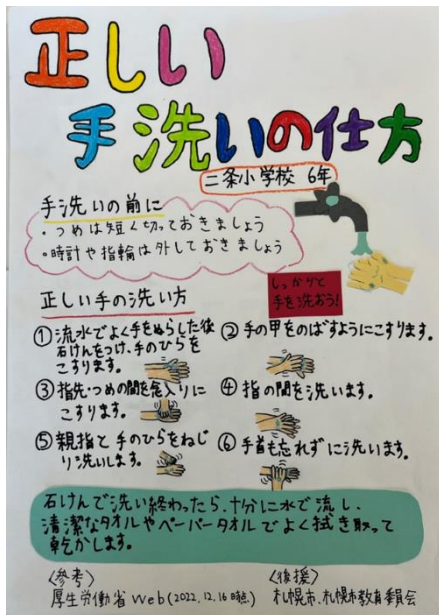 正しい
手洗いの仕方
二条小学校 6年
手洗いの前に
・つめは短く切っておきましょう
・時計や指輪は外しておきましょう
しっかりと
手を洗おう!
正しい手の洗い方
①流水でよく手をぬらした後
石けんをつけ、手のひらを
こすります。
②手の甲をのばすようにこすります。
③指先・つめの間を念入りに
こすります。
④指の間を洗います。
⑤親指と手のひらをねじ
り洗いします。
⑥手首も忘れずに洗います。
石けんで洗い終わったら、十分に水で流し、
清潔なタオルやペーパータオルでよく拭き取って
乾かします。
〈参考〉
厚生労働省 Web(2022.12.16時点)
〈後援〉
札幌市、札幌市教育委員会